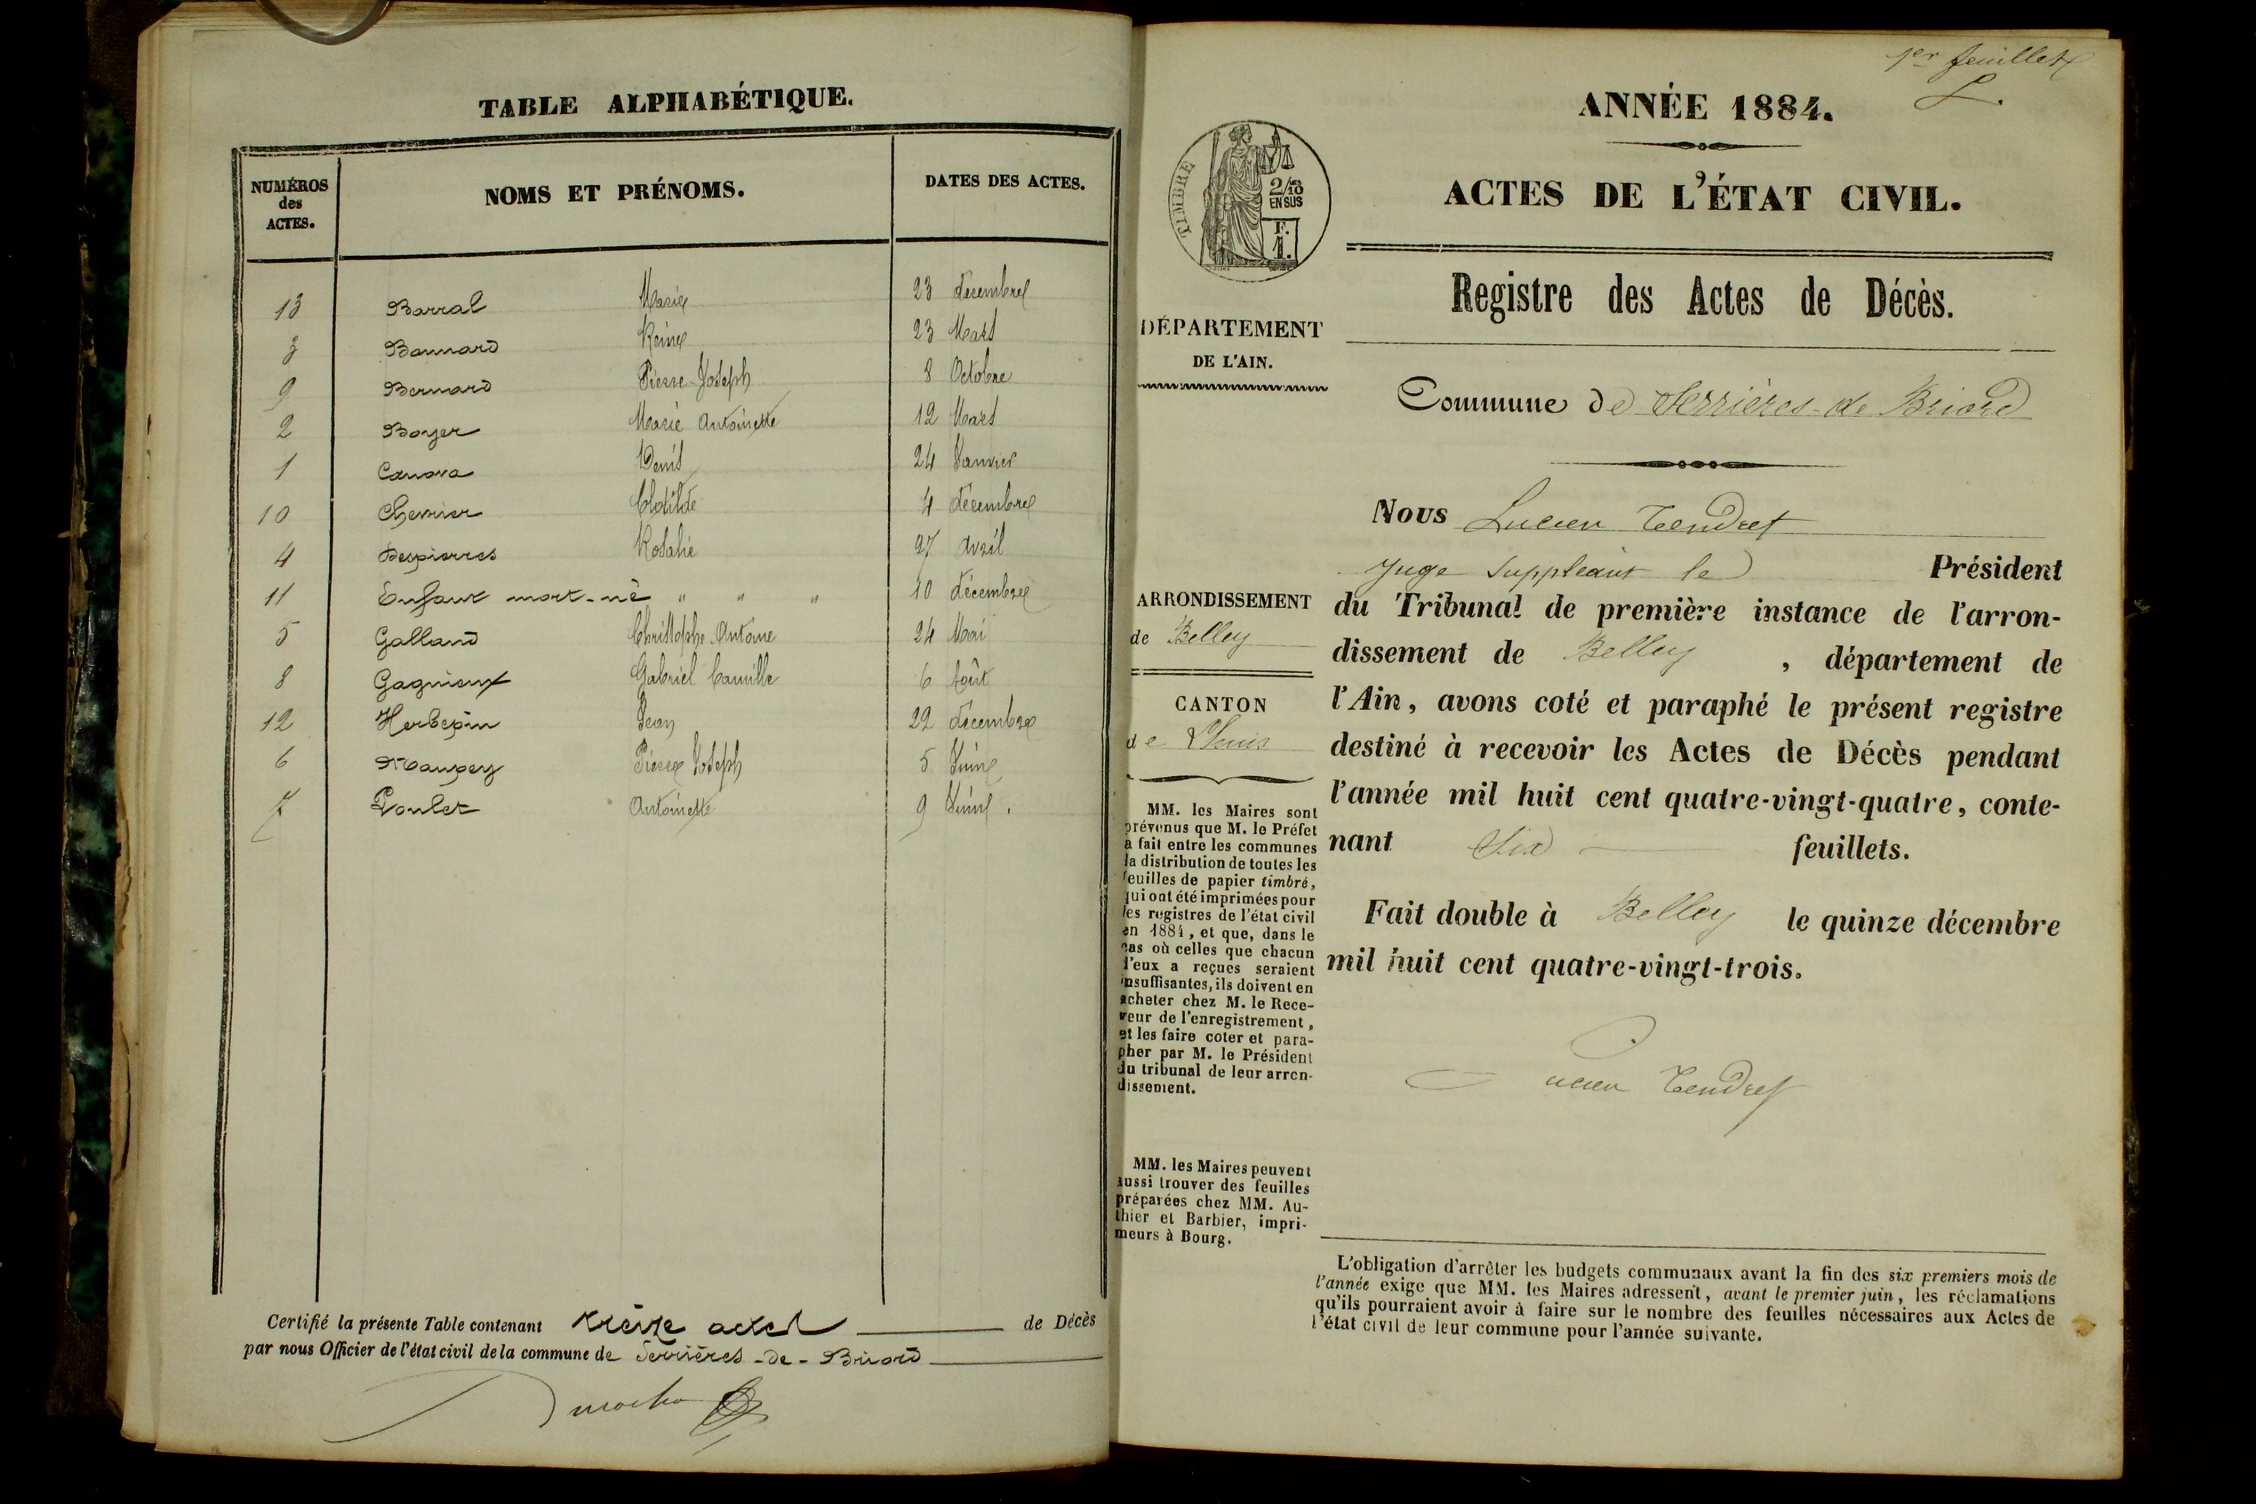 TABLE ALPHABÉTIQUE.
NUMÉROS des ACTES.
NOMS ET PRÉNOMS.
DATES DES ACTES.
13 Barral Marie 23 décembre
3 Bonnard Reine 23 Mars
9 Bernard Pierre Joseph 8 Octobre
2 Boyer Marie Antoinette 12 Mars
1 Canova Denis 24 Janvier
10 Chevrier Clotilde 4 décembre
4 Despierres Rosalie 27 Avril
11 Enfant mort-né " " " 10 décembre
5 Galland Christophe Antoine 24 Mai
8 Gagnieux Gabriel Camille 6 Août
12 Herbepin Jean 22 décembre
6 Maupey Pierre Joseph 5 Juin
7 Poulet Antoinette 9 Juin.
Certifié la présente Table contenant treize actes de Décès
par nous Officier de l'état civil de la commune de Serrières-de-Briord
1er feuillet
L.
ANNÉE 1884.
ACTES DE L'ÉTAT CIVIL.
TIMBRE
2/10 EN SUS
F. 1.
Registre des Actes de Décès.
DÉPARTEMENT
DE L'AIN.
Commune de Serrières-de Briord
Nous Lucien Tendret
Juge Suppléant le Président
du Tribunal de première instance de l'arron-
dissement de Belley, département de
l'Ain, avons coté et paraphé le présent registre
destiné à recevoir les Actes de Décès pendant
l'année mil huit cent quatre-vingt-quatre, conte-
nant Six feuillets.
Fait double à Belley le quinze décembre
mil huit cent quatre-vingt-trois.
Lucien Tendret
ARRONDISSEMENT
de Belley
CANTON
de Lhuis
MM. les Maires sont
prévenus que M. le Préfet
a fait entre les communes
la distribution de toutes les
feuilles de papier timbré,
qui ont été imprimées pour
les registres de l'état civil
en 1884, et que, dans le
cas où celles que chacun
d'eux a reçues seraient
insuffisantes, ils doivent en
acheter chez M. le Rece-
veur de l'enregistrement,
et les faire coter et para-
pher par M. le Président
du tribunal de leur arron-
dissement.
MM. les Maires peuvent
aussi trouver des feuilles
préparées chez MM. Au-
thier et Barbier, impri-
meurs à Bourg.
L'obligation d'arrêter les budgets communaux avant la fin des six premiers mois de
l'année exige que MM. les Maires adressent, avant le premier juin, les réclamations
qu'ils pourraient avoir à faire sur le nombre des feuilles nécessaires aux Actes de
l'état civil de leur commune pour l'année suivante.